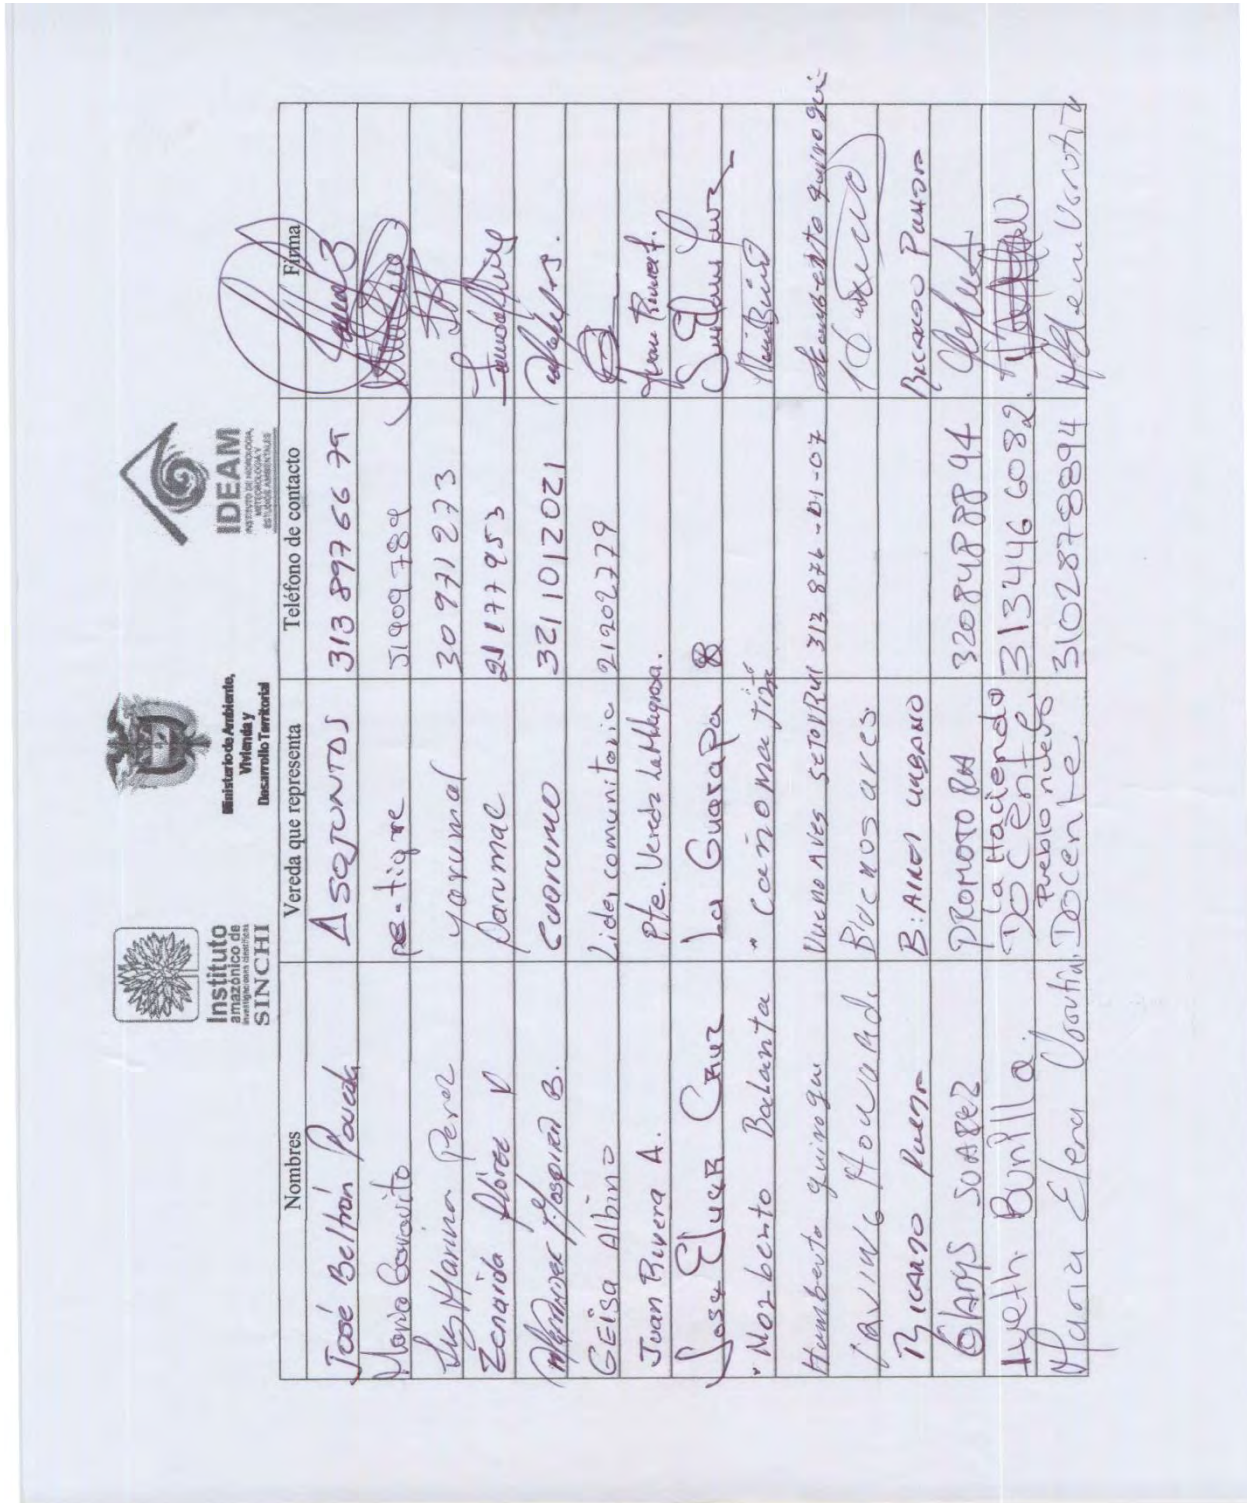 Instituto
amazónico de
investigaciones científicas
SINCHI
Ministerio de Ambiente,
Vivienda y
Desarrollo Territorial
IDEAM
INSTITUTO DE HIDROLOGÍA,
METEOROLOGÍA Y
ESTUDIOS AMBIENTALES
Nombres Vereda que representa Teléfono de contacto Firma
José Beltrán Poveda Asojuntos 313 897 66 79
Mario Garavito pe-tigre 51909789
Luz Marina Perez yarumal 30971273
Zenaida Flórez V Yarumal 21177953
J. Mosquera B. Caarumo 321 1012021
GEisa Albino Lider comunitario 21202779
Juan Rivera A. Pte. Vereda La Milagrosa. Juan River A.
Jose Elicer Cruz La Guarapa
Norberto Balanta Caño Mactigre
Humberto quiroga 313 876-01-07 Humberto quiroga
Buenos aires
Ricardo B: AIRES URBANO Ricardo
Gladys SUAREZ PROMOTORA 3208488894
Iveth Bonilla. La Hacienda Docente. 313446 6082.
Maria Elena Urrutia. Pueblo nuevo Docente. 3102878894